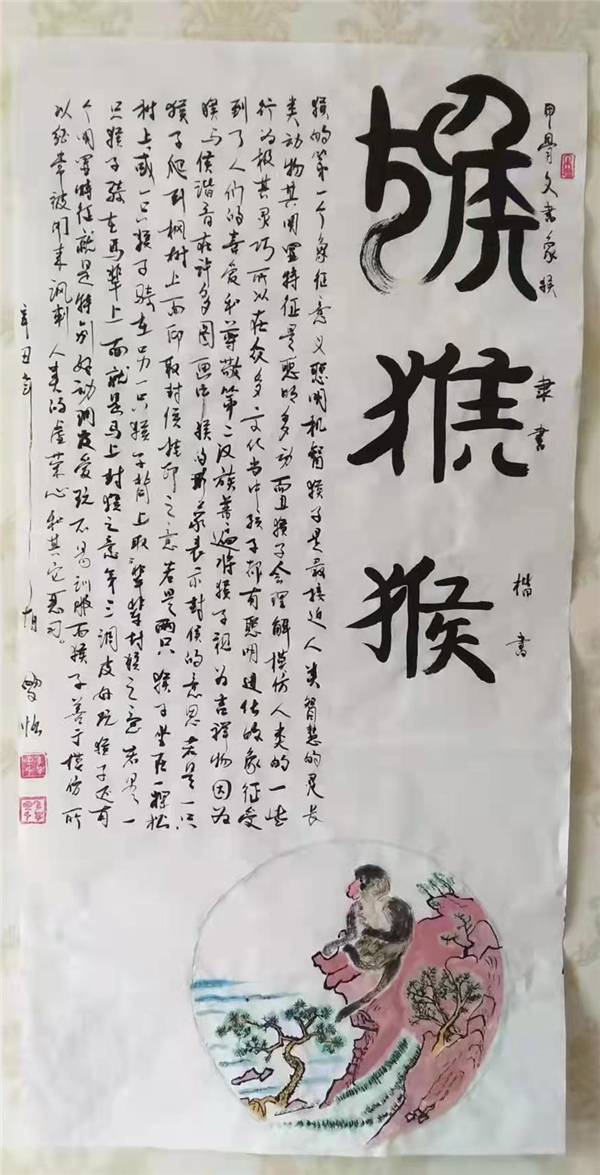 甲骨文書象猴
猴
隶書
猴
楷書
猴
猴的第一个象征意义聪明机智猴子是最接近人类智慧的灵长
类动物其明显特征是聪明多动而且猴子会理解模仿人类的一些
行为极其灵巧所以在众多文化当中猴子都有聪明进化的象征受
到了人们的喜爱和尊敬第二汉族普遍将猴子视为吉祥物因为
猴与侯谐音在许多图画中猴的形象表示封侯的意思若是一只
猴子爬到枫树上面即取封侯挂印之意若是两只猴子坐在一棵松
树上或一只猴子骑在另一只猴子背上取辈辈封猴之意若是一
只猴子骑在马背上面就是马上封猴之意第三调皮好玩猴子还有
个明显特征就是特别好动调皮爱玩不易驯服而猴子善于模仿所
以经常被用来讽刺人类的虚荣心和其它恶习。
辛丑年